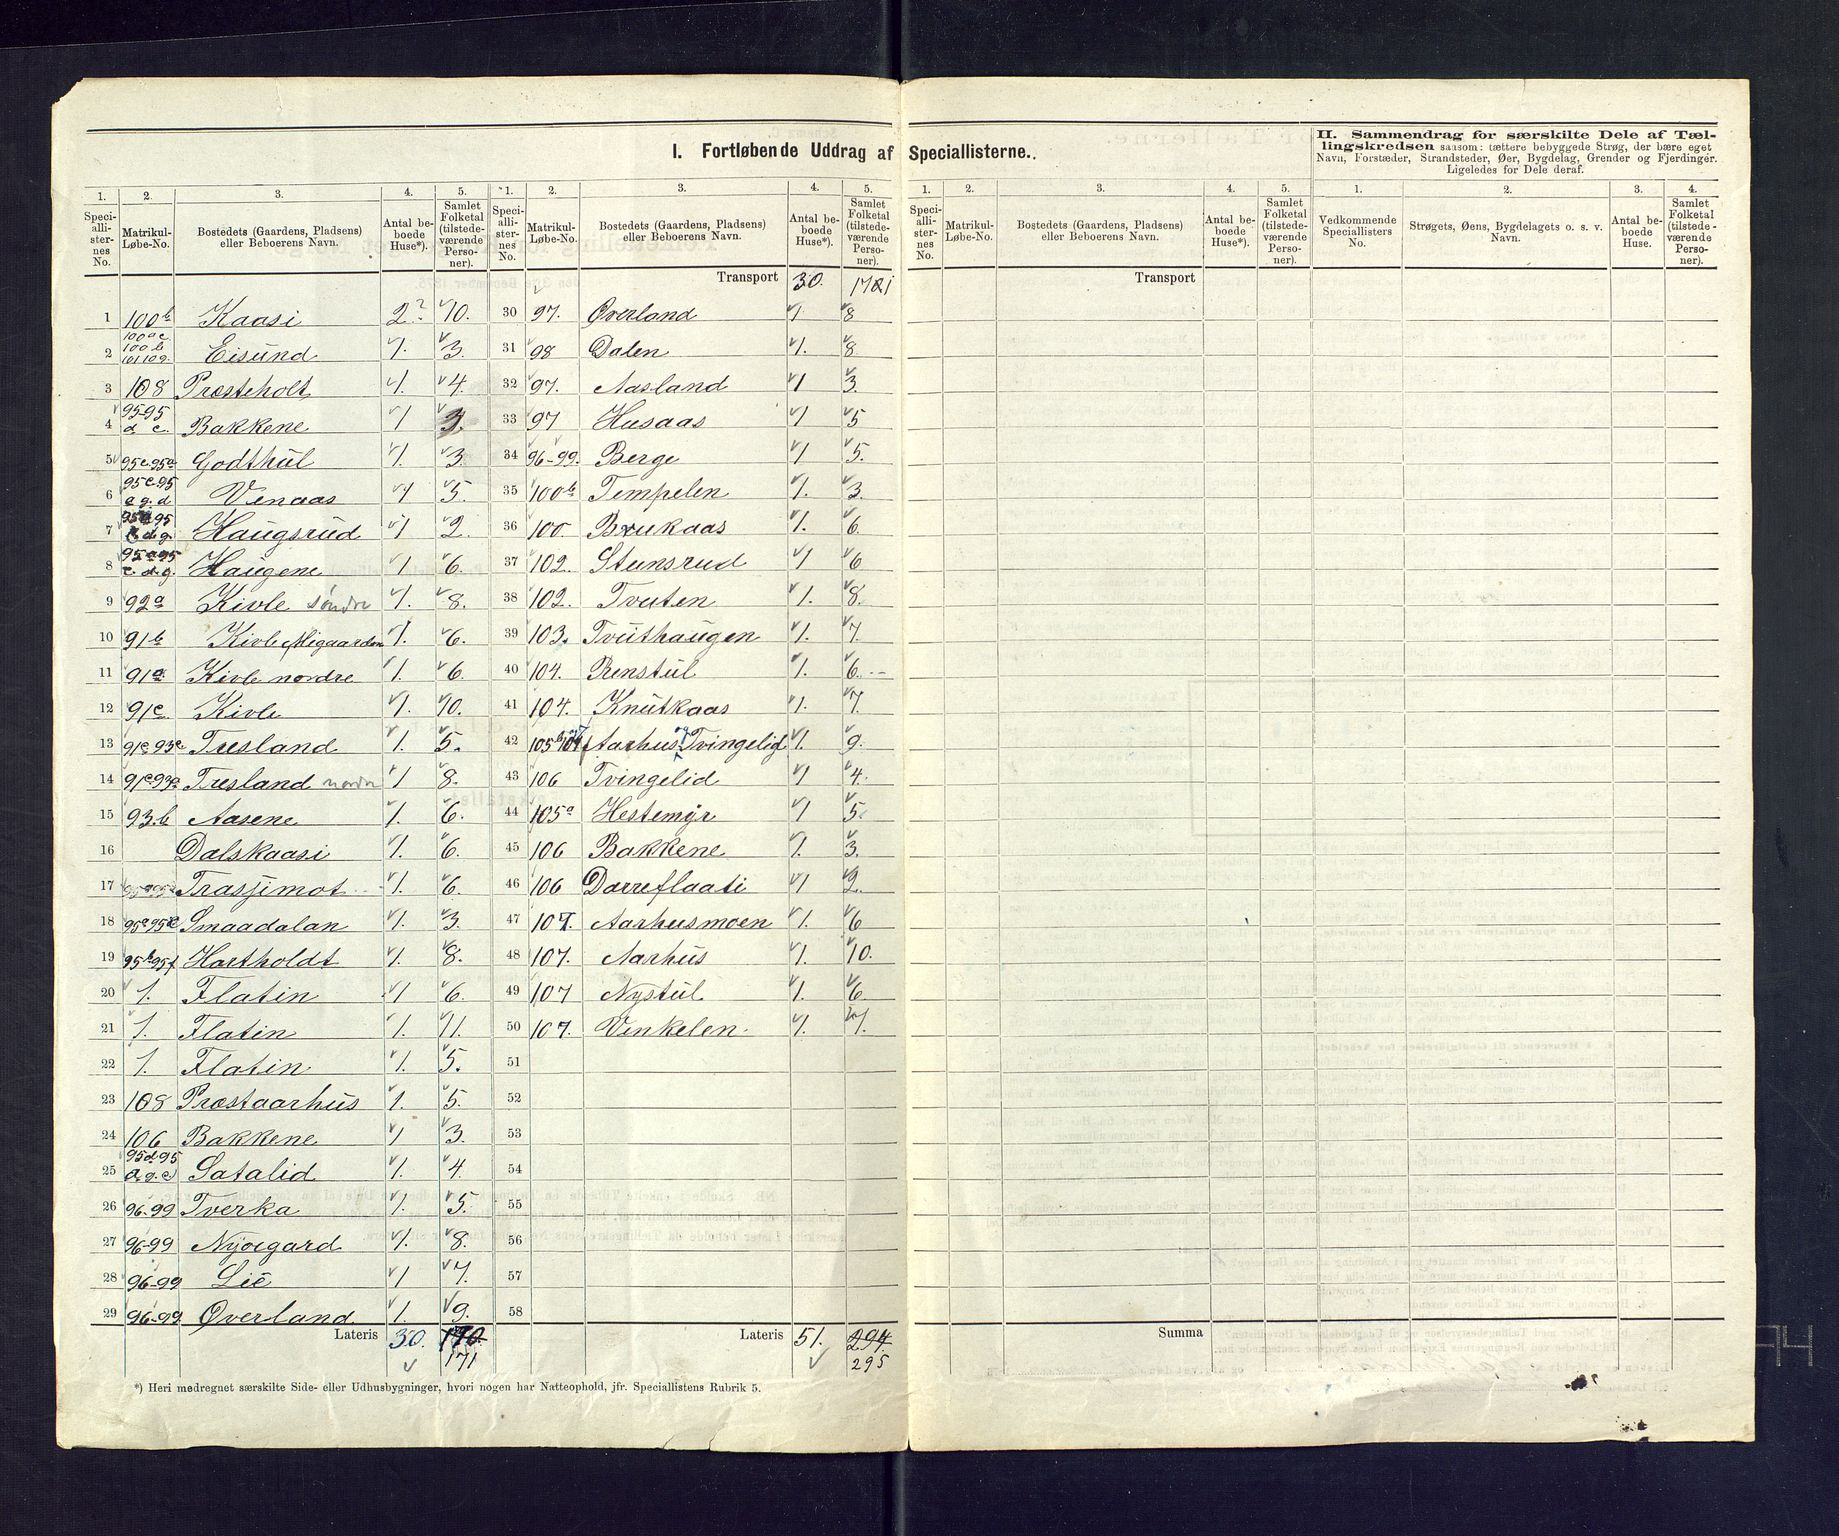 I. Fortløbende Uddrag af Speciallisterne.
II. Sammendrag for særskilte Dele af Tæl-
lingskredsen saasom: tættere bebyggede Strøg, der bære eget
Navn, Forstæder, Strandsteder, Øer, Bygdelag, Grender og Fjerdinger.
Ligeledes for Dele deraf.
1. 2. 3. 4. 5. 1. 2. 3. 4. 5. 1. 2. 3. 4. 5. 1. 2. 3. 4.
Speciallisternes No. Matrikul-Løbe-No. Bostedets (Gaardens, Pladsens) eller Beboerens Navn. Antal beboede Huse*). Samlet Folketal (tilstedeværende Personer).
Speciallisternes No. Matrikul-Løbe-No. Bostedets (Gaardens, Pladsens) eller Beboerens Navn. Antal beboede Huse*). Samlet Folketal (tilstedeværende Personer).
Speciallisternes No. Matrikul-Løbe-No. Bostedets (Gaardens, Pladsens) eller Beboerens Navn. Antal beboede Huse*). Samlet Folketal (tilstedeværende Personer).
Vedkommende Speciallisters No. Strøgets, Øens, Bygdelagets o. s. v. Navn. Antal beboede Huse. Samlet Folketal (tilstedeværende Personer).
1 100b Kaasi 2 10.
2 100ac 100b Eisund 1. 3.
3 108 Præsteholt 1. 4.
4 95-95 d c. Bakkene 1 3.
5 95c.95a Godthul 1. 3
6 95c.95 e g. d Venaas 1 5.
7 95 Haugsrud 1 2.
8 95a95 c. d. g. Haugene 1 6.
9 92a Kivle søndre 1. 8.
10 91b Kivle Migaarden 1. 6.
11 91a Kivle nordre 1. 6.
12 91c. Kivle 1. 10.
13 91c 93c Træsland 1. 5.
14 91c93a Træsland nordre 1 8.
15 93.b Aasene 1. 6.
16 Dalskaasi 1. 6.
17 Trasjimot 1. 6.
18 95c95c Smaadalan 1. 3.
19 95b95f Hartholdt 1. 8.
20 1. Flatin 1 6.
21 1. Flatin 1. 11.
22 1. Flatin 1. 5.
23 108 Præstaarhus 1. 5.
24 106 Bakkene 1 3.
25 95d95 a. g. c Satalid 1. 4.
26 96-99 Tverka 1. 5.
27 96-99 Nyøegard 1. 8.
28 96-99 Lie 1 7.
29 96-99. Øverland 1. 9.
Lateris 30. 170. 171
Transport 30. 171
30 97. Øverland 1 8
31 98 Dalen 1. 8.
32 97. Aasland 1 3.
33 97 Husaas 1 5
34 96-99. Berge 1 5.
35 100b Tempelen 1. 3.
36 100. Brukaas 1. 6.
37 102. Stensrud 1 6
38 102. Tvuten 1. 8.
39 103. Tvuthaugen 1. 7.
40 104. Renstul 1. 6.
41 104. Knutkaas 1. 7.
42 105b104 Aarhus og Tvingelid 1. 9.
43 106 Tvingelid 1 4.
44 105a Hestemyr 1 5.
45 106 Bakkene 1. 3.
46 106 Darreflaati 1 2.
47 107. Aarhusmoen 1. 6
48 107. Aarhus 1. 10.
49 107 Nystul 1. 6
50 107. Vinkelen. 1. 7.
51
52
53
54
55
56
57
58
Lateris 51. 294 295
Transport
Summa
*) Heri medregnet særskilte Side- eller Udhusbygninger, hvori nogen har Natteophold, jfr. Speciallistens Rubrik 5.